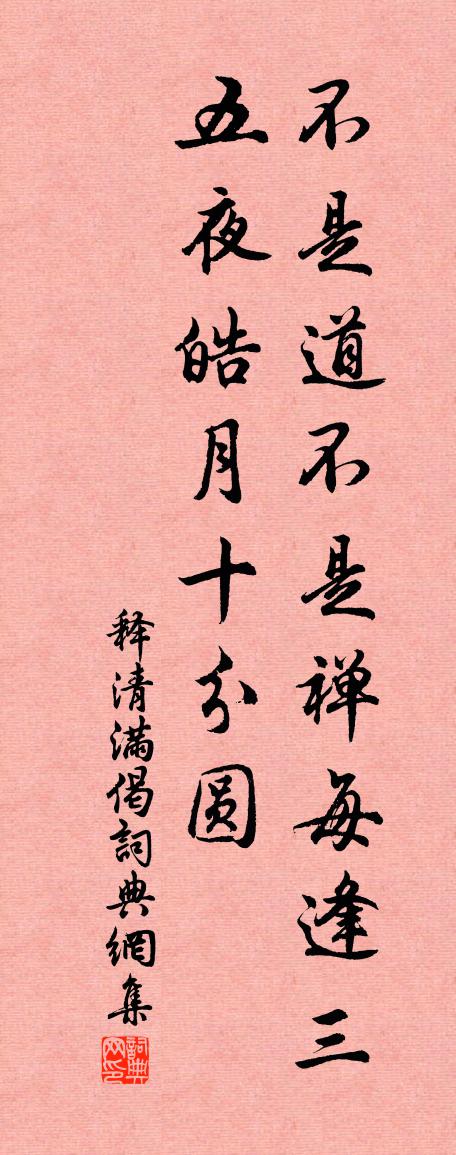 不是道不是禅每逢三
五夜皓月十分圆
释清满偈詞典網集
詞典网印